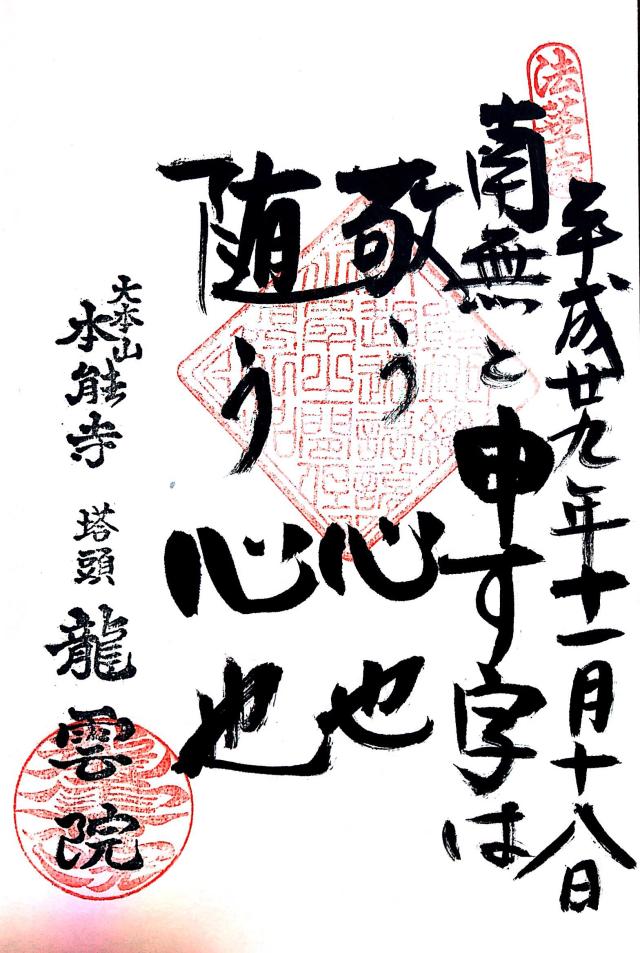 平成廿九年十一月十八日
南無と申す字は
敬う心也
随う心也
大本山
本能寺 塔頭 龍雲院